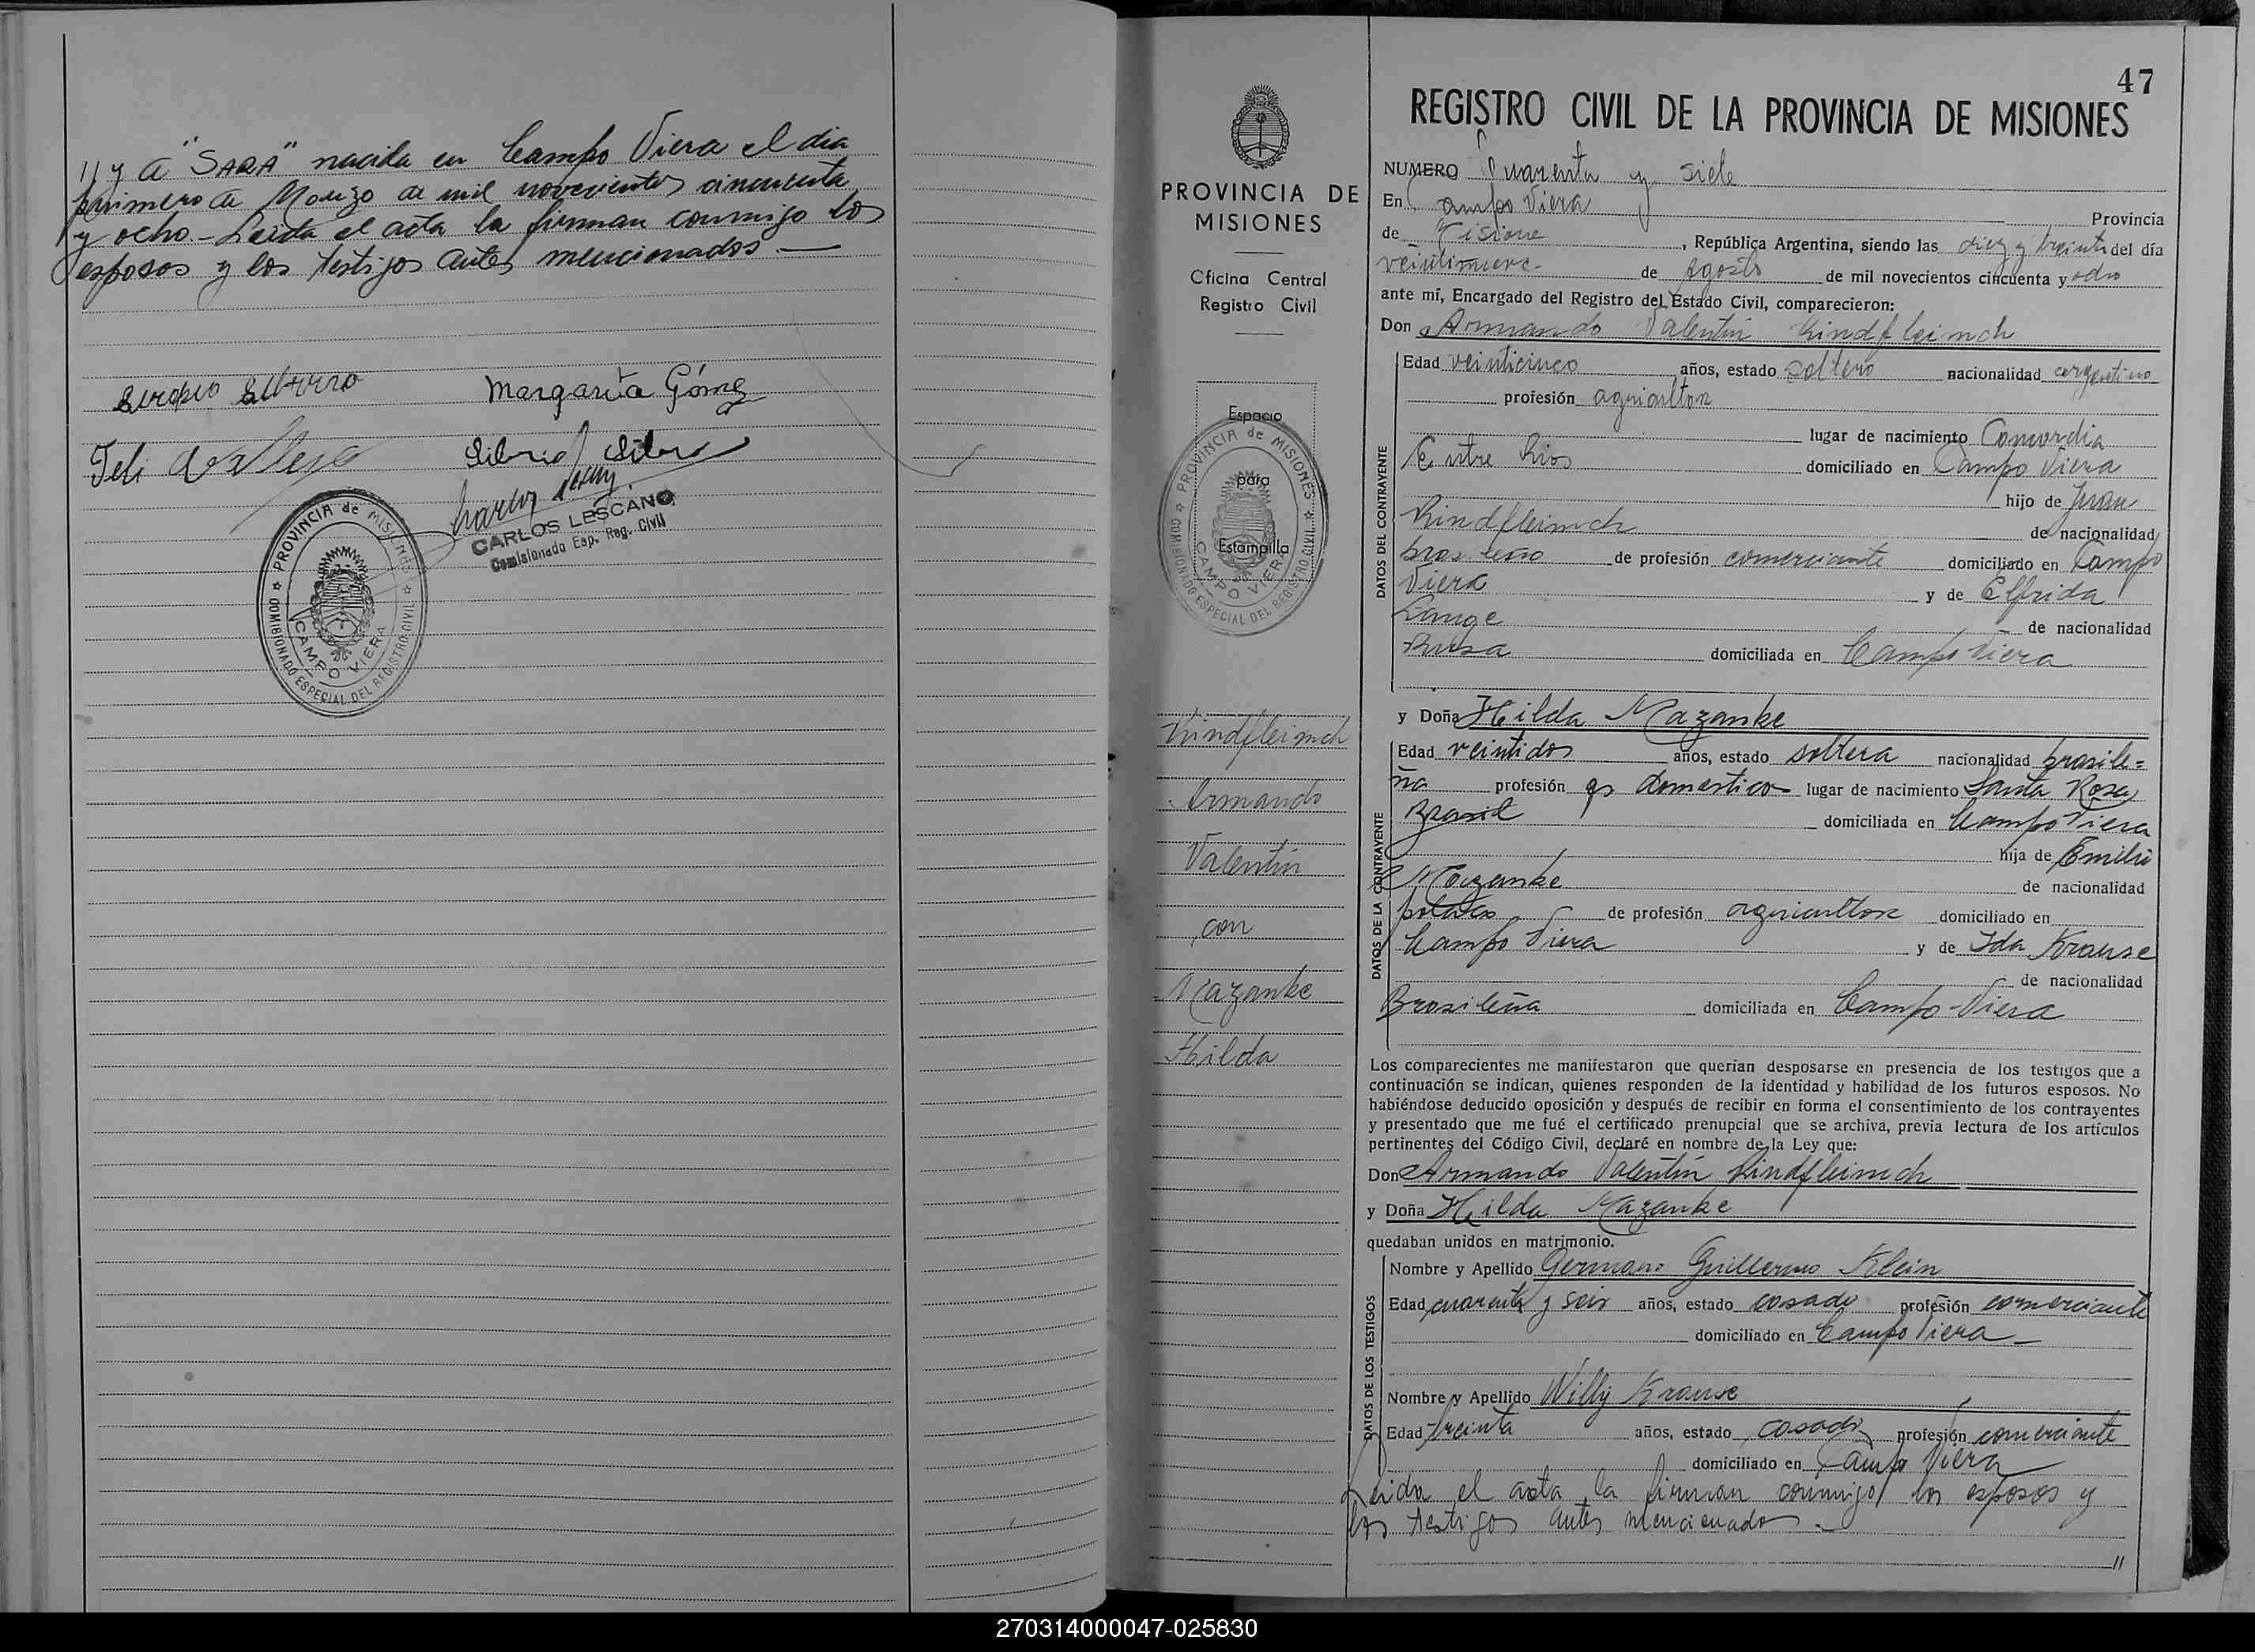 // y a "SARA" nacida en Campo Viera el dia
primero de Marzo de mil novecientos cincuenta
y ocho.- Leida el acta la firman conmigo los
esposos y los testigos antes mencionados.-
Margarita Gómez
CARLOS LESCANO
Comisionado Esp. Reg. Civil
PROVINCIA de MISIONES
COMISIONADO ESPECIAL DEL REGISTRO CIVIL
CAMPO VIERA
PROVINCIA DE
MISIONES
Oficina Central
Registro Civil
Espacio
para
Estampilla
PROVINCIA de MISIONES
COMISIONADO ESPECIAL DEL REGISTRO CIVIL
CAMPO VIERA
Kindfleimch
Armando
Valentín
con
Mazanke
Hilda
47
REGISTRO CIVIL DE LA PROVINCIA DE MISIONES
NUMERO Cuarenta y siete
En Campo Viera Provincia
de Misione, República Argentina, siendo las diez y treinta del día
veintinueve de Agosto de mil novecientos cincuenta y ocho
ante mí, Encargado del Registro del Estado Civil, comparecieron:
Don Armando Valentín Kindfleimch
DATOS DEL CONTRAYENTE
Edad veinticinco años, estado soltero nacionalidad argentino
profesión agricultor
lugar de nacimiento Concordia
Entre Rios domiciliado en Campo Viera
hijo de Juan
Kindfleimch de nacionalidad
brasileño de profesión comerciante domiciliado en Campo
Viera y de Elfrida
Lange de nacionalidad
Rusa domiciliada en Campo Viera
y Doña Hilda Mazanke
DATOS DE LA CONTRAYENTE
Edad veintidos años, estado soltera nacionalidad brasile=
ña profesión qs domesticos lugar de nacimiento Santa Rosa
Brasil domiciliada en Campo Viera
hija de Emilio
Mazanke de nacionalidad
polaco de profesión agricultor domiciliado en
Campo Viera y de Ida Krause
de nacionalidad
Brasileña domiciliada en Campo-Viera
Los comparecientes me manifestaron que querían desposarse en presencia de los testigos que a
continuación se indican, quienes responden de la identidad y habilidad de los futuros esposos. No
habiéndose deducido oposición y después de recibir en forma el consentimiento de los contrayentes
y presentado que me fué el certificado prenupcial que se archiva, previa lectura de los artículos
pertinentes del Código Civil, declaré en nombre de la Ley que:
Don Armando Valentín Kindfleimch
y Doña Hilda Mazanke
quedaban unidos en matrimonio.
DATOS DE LOS TESTIGOS
Nombre y Apellido Germano Guillermo Klein
Edad cuarenta y seis años, estado casado profesión comerciante
domiciliado en Campo Viera
Nombre y Apellido Willy Krause
Edad treinta años, estado casado profesión comerciante
domiciliado en Campo Viera
Leida el acta la firman conmigo los esposos y
los testigos antes mencionados.-
//
270314000047-025830